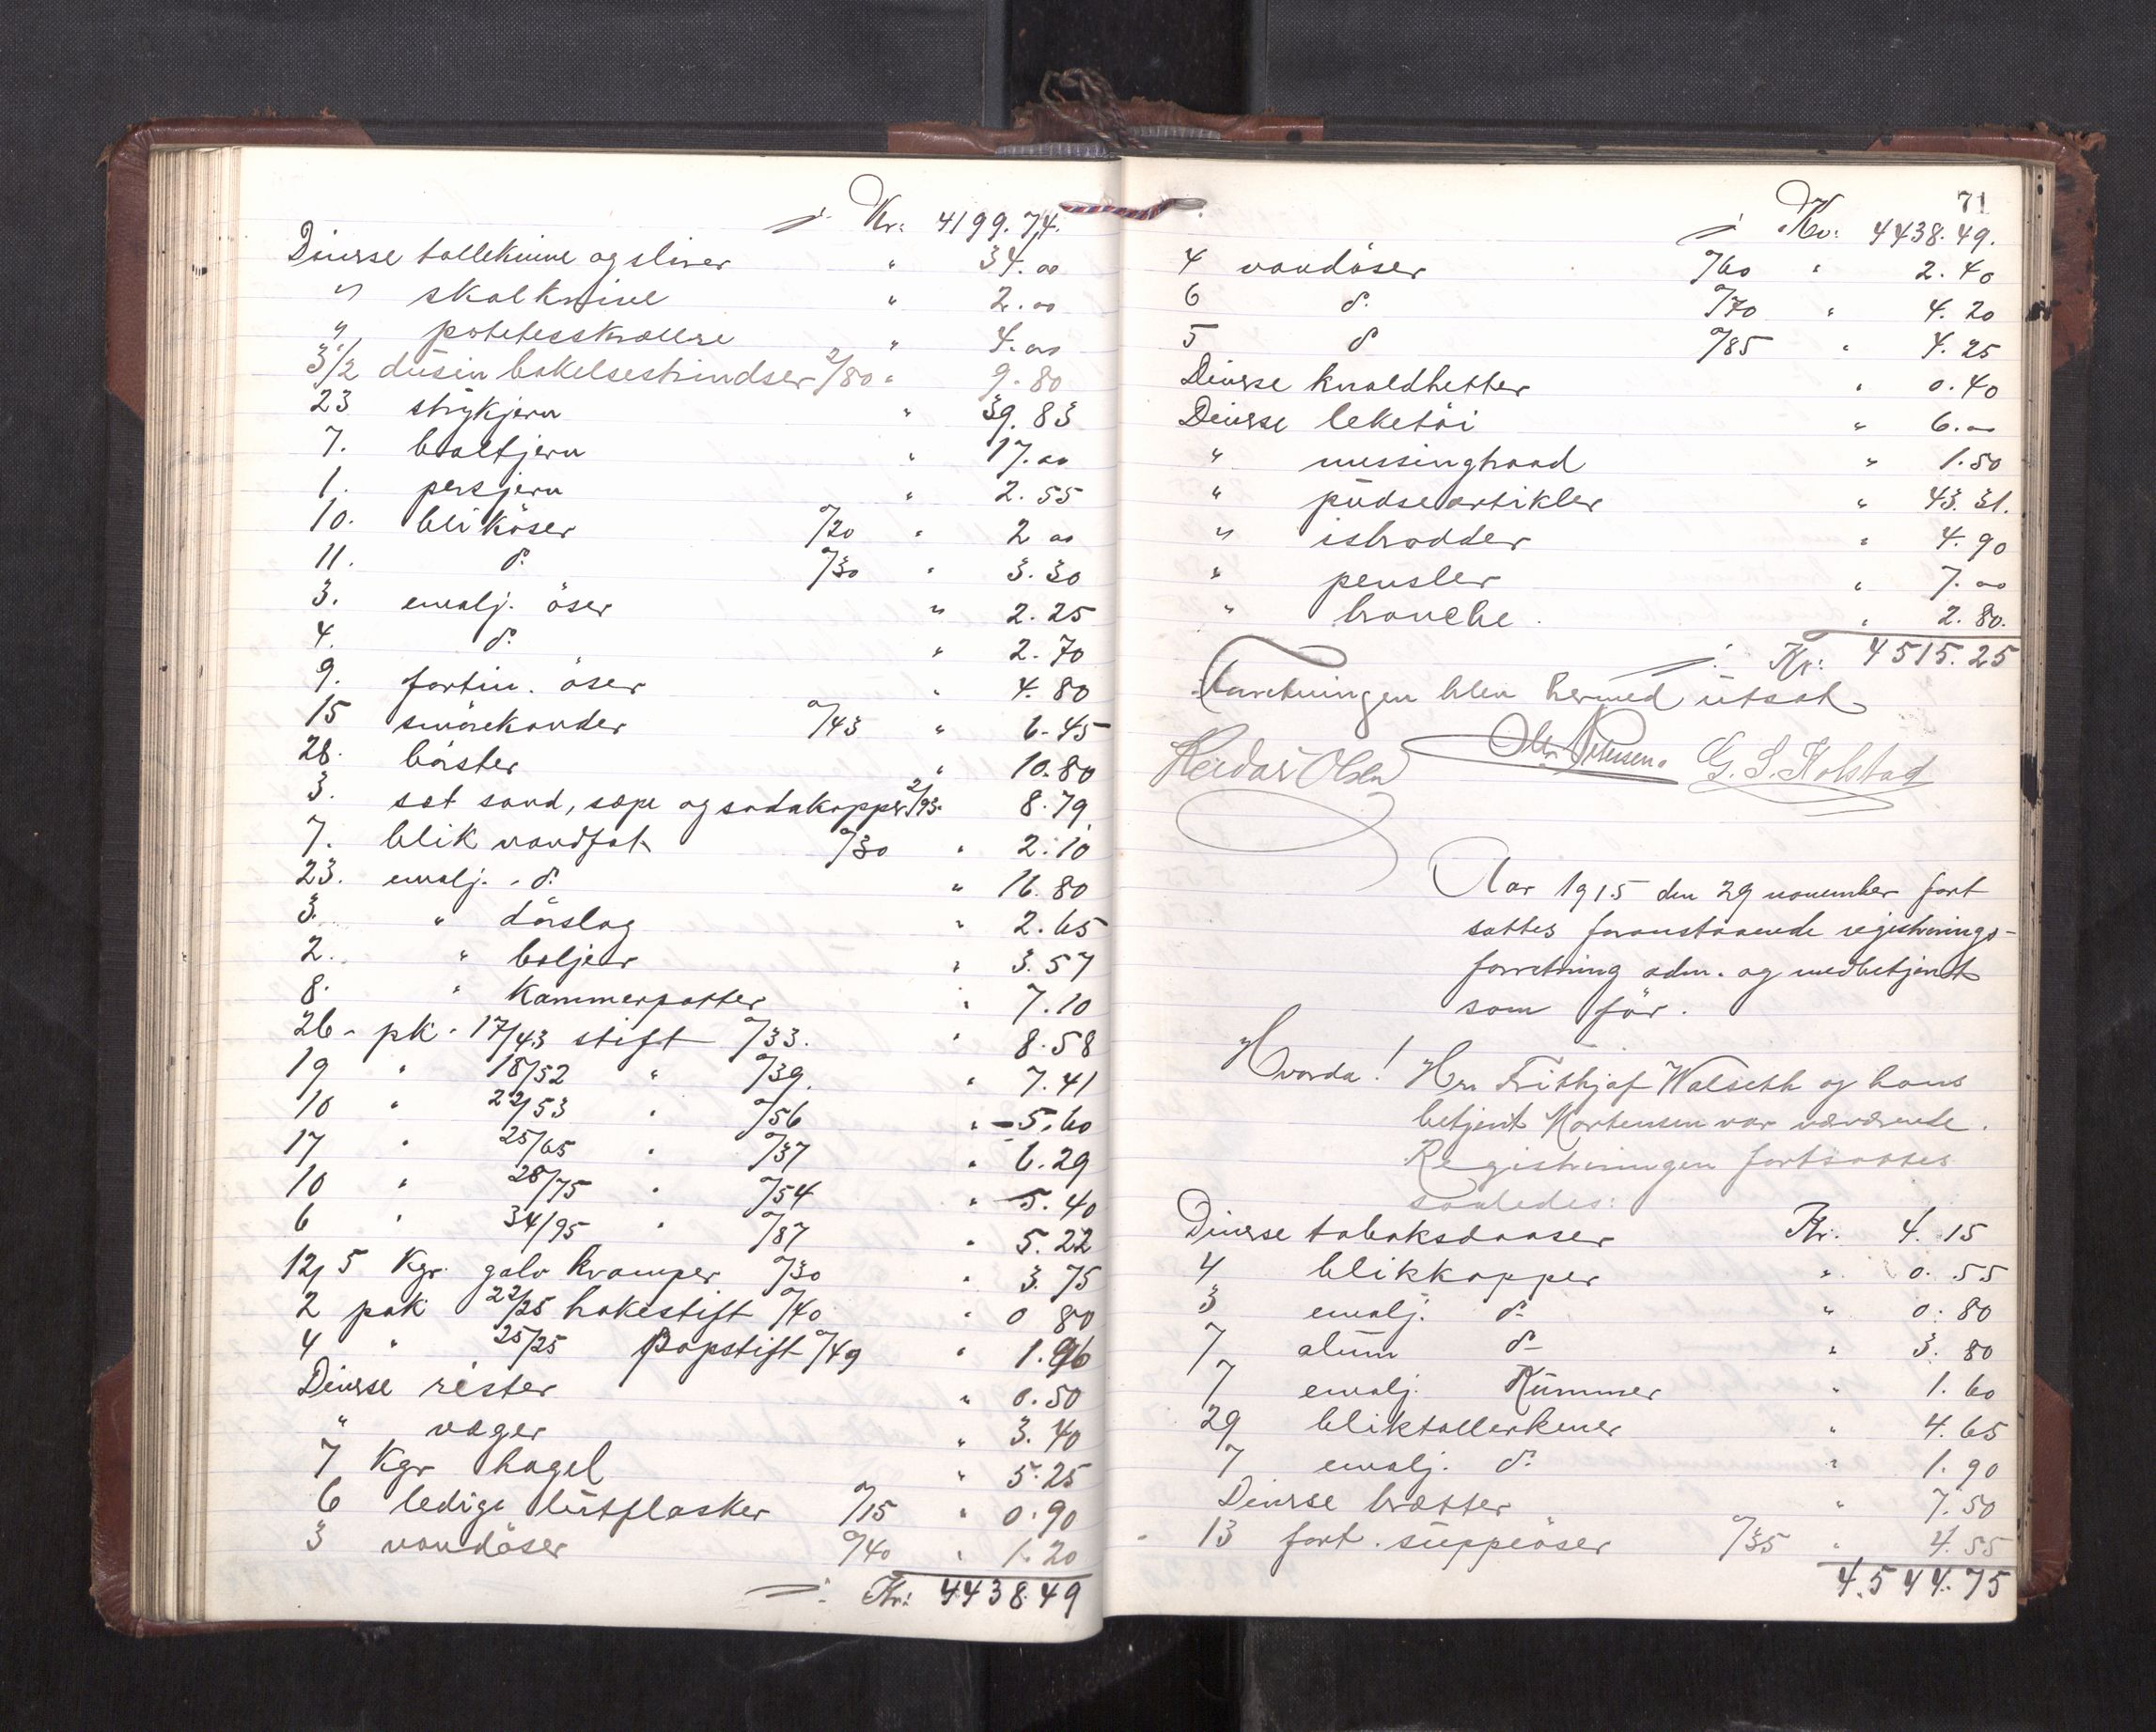 ./. Kr: 4199.74.
Diverse tolleknive og slirer " 34.00
" skolknive " 2.00
" potetesskrællere " 4.00
3 1/2 dusin bakelsestrindser 2/80 " 9.80
23 strykjern " 39.83
7. boltjern " 17.00
1. persjern " 2.55
10. bliköser 0/20 " 2 00
11. do. 0/30 " 3.30
3. emalj. öser " 2.25
4. do. " 2.70
9. fortin. öser " 4.80
15 smörekander 0/43 " 6.45
28. börster " 10.80
3. set sand, sæpe og sodakopper 2/93. 8.79
7. blik vandfat 0/30 " 2.10
23. emalj. " do. " 16.80
3. " dörslag " 2.65
2. " boljer " 3.57
8. " Kammerpotter " 7.10
26 " pk. 17/43 stift 0/33. " 8.58
19 " 18/52 " 0/39. " 7.41
10 " 22/53 " 0/56 " 5.60
17 " 25/65 " 0/37 " 6.29
10 " 28/75 " 0/54 " 5.40
6 " 34/95 " 0/87 " 5.22
12,5 Kgr. galv kramper 0/30 " 3.75
2 pak 22/25 hakestift 0/40 " 0 80
4 " 25/25 Papstift 0/49 " 1.96
Diverse rester " 0.50
" væger " 3.40
7 Kgr hagel " 5.25
6 ledige lutflasker 0/15 " 0.90
3 vandöser 0/40 " 1.20
./. Kr: 4438.49
71
./. Kr: 4438.49.
4 vandöser 0/60 " 2.40
6 do. 0/70 " 4.20
5 do 0/85 " 4.25
Diverse knaldhetter " 0.40
Diverse leketöi " 6.00
" messingtraad " 1.50
" pudseartikler " 43.31.
" isbrodder " 4.90
" pensler " 7.00
" bronche. " 2.80.
./. Kr: 4515.25
Forretningen blev hermed utsat
Heidar Olsen Petersen. G. S. Kolstad
Aar 1915 den 29 november fort
sattes foranstaaende registrerings-
forretning adm. og medbetjent
som för.
Hvorda! Hr. Frithjof Walseth og hans
betjent Mortensen var nærværende.
Registreringen fortsattes
saaledes:
Diverse tobaksdaaser Kr. 4.15
4 blikkopper " 0.55
3 emalj. do " 0.80
7 alum do " 3.80
7 emalj. Kummer " 1.60
29 bliktallerkener " 4.65
7 emalj. do. " 1.90
Diverse bretter " 7.50
13 fort. suppeöser 0/35 " 4.55
4.544.75